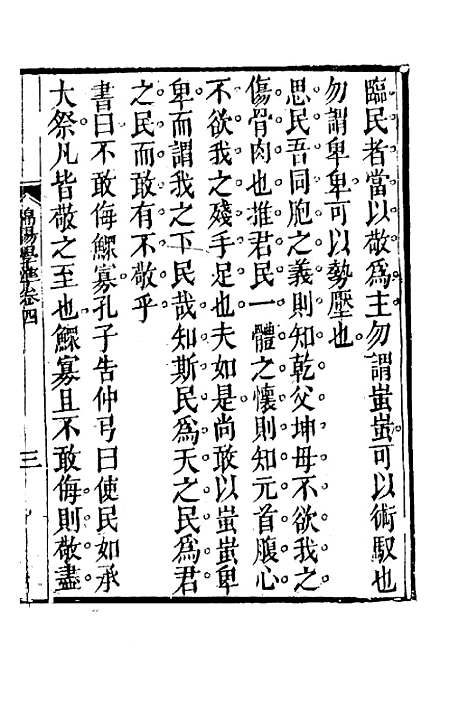 臨民者當以敬爲主勿謂蚩蚩可以術馭也
勿謂卑卑可以勢壓也
思民吾同胞之義則知乾父坤母不欲我之
傷骨肉也推君民一體之懷則知元首腹心
不欲我之殘手足也夫如是尚敢以蚩蚩卑
卑而謂我之下民哉知斯民爲天之民爲君
之民而敢有不敬乎
書曰不敢侮鰥寡孔子告仲弓曰使民如承
大祭凡皆敬之至也鰥寡且不敢侮則敬盡
卷四
三